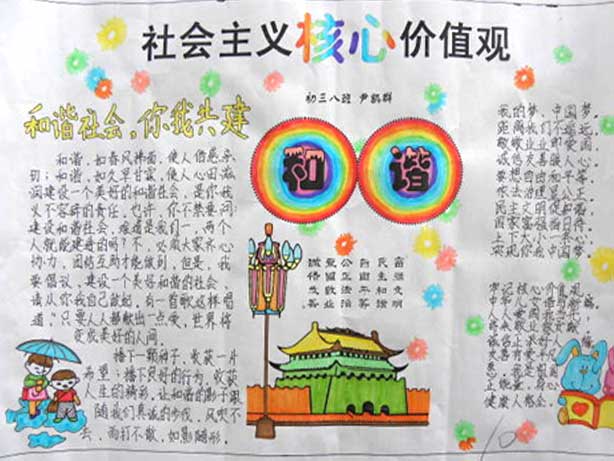 社会主义核心价值观
初三八班 尹凯群
和谐社会,你我共建
和谐
和谐,如春风拂面,使人倍感亲
切;和谐,如久旱甘霖,使人心田滋
润建设一个美好的和谐社会,是你我
义不容辞的责任。也许,你不禁要问:
建设和谐社会,难道是我们一、两个
人就能建奇的吗?不,必须大家齐心
协力,团结互助才能做到,但是,我
要倡议,建设一个美好和谐的社会
请从你我自己做起,有一首歌这样唱
道:"只要人人都献出一点爱,世界将
变成美好的人间。
播下一颗种子,收获一片
希望;播下良好的行为,收获
人生的精彩,让和谐的影子跟
随我们真诚的步伐,风吹不
去,雨打不散,如影随形。
富强
民主文明
和谐
自由平等
公正法治
爱国敬业
诚信友善
我的梦,中国梦。
距离我们不遥远,
敬敬业业即爱国,
诚信友善暖人心。
要想自由和平等,
依法治理显公正。
民主文明促和谐,
国家富强指日待。
上下大小一条心
实现你我中国梦
牢记核心价值观
中华儿女
人人爱国
人人敬业
诚信
友善
上能量,身心
健康人格全。
10